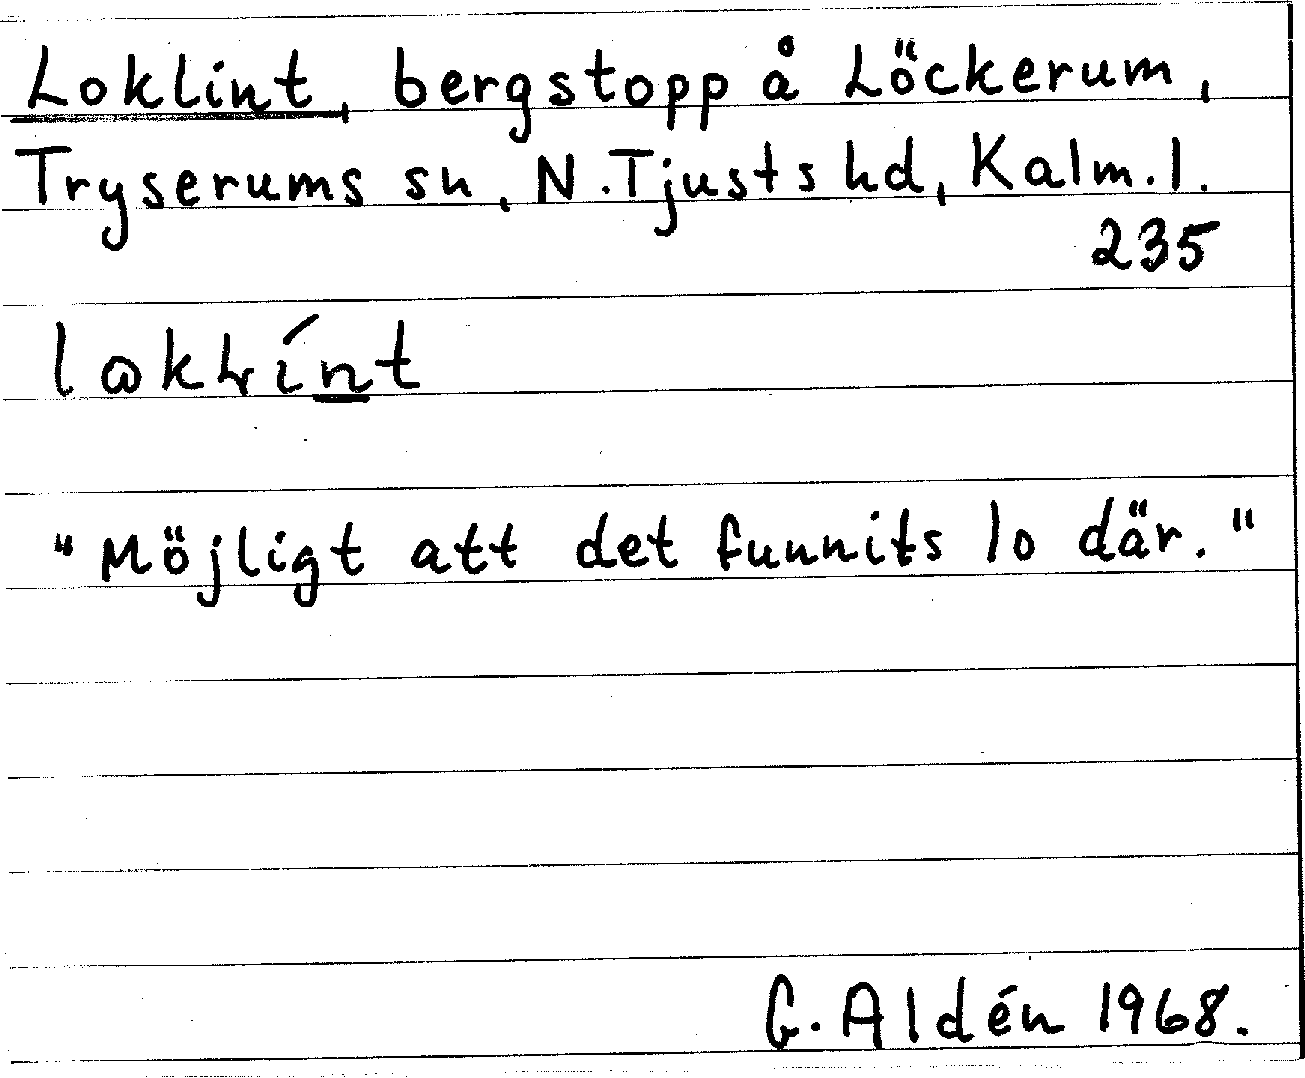 Loklint, bergstopp å Löckerum,
Tryserums sn, N. Tjusts hd, Kalm. l.
235
"Möjligt att det funnits lo där."
G. Aldén 1968.